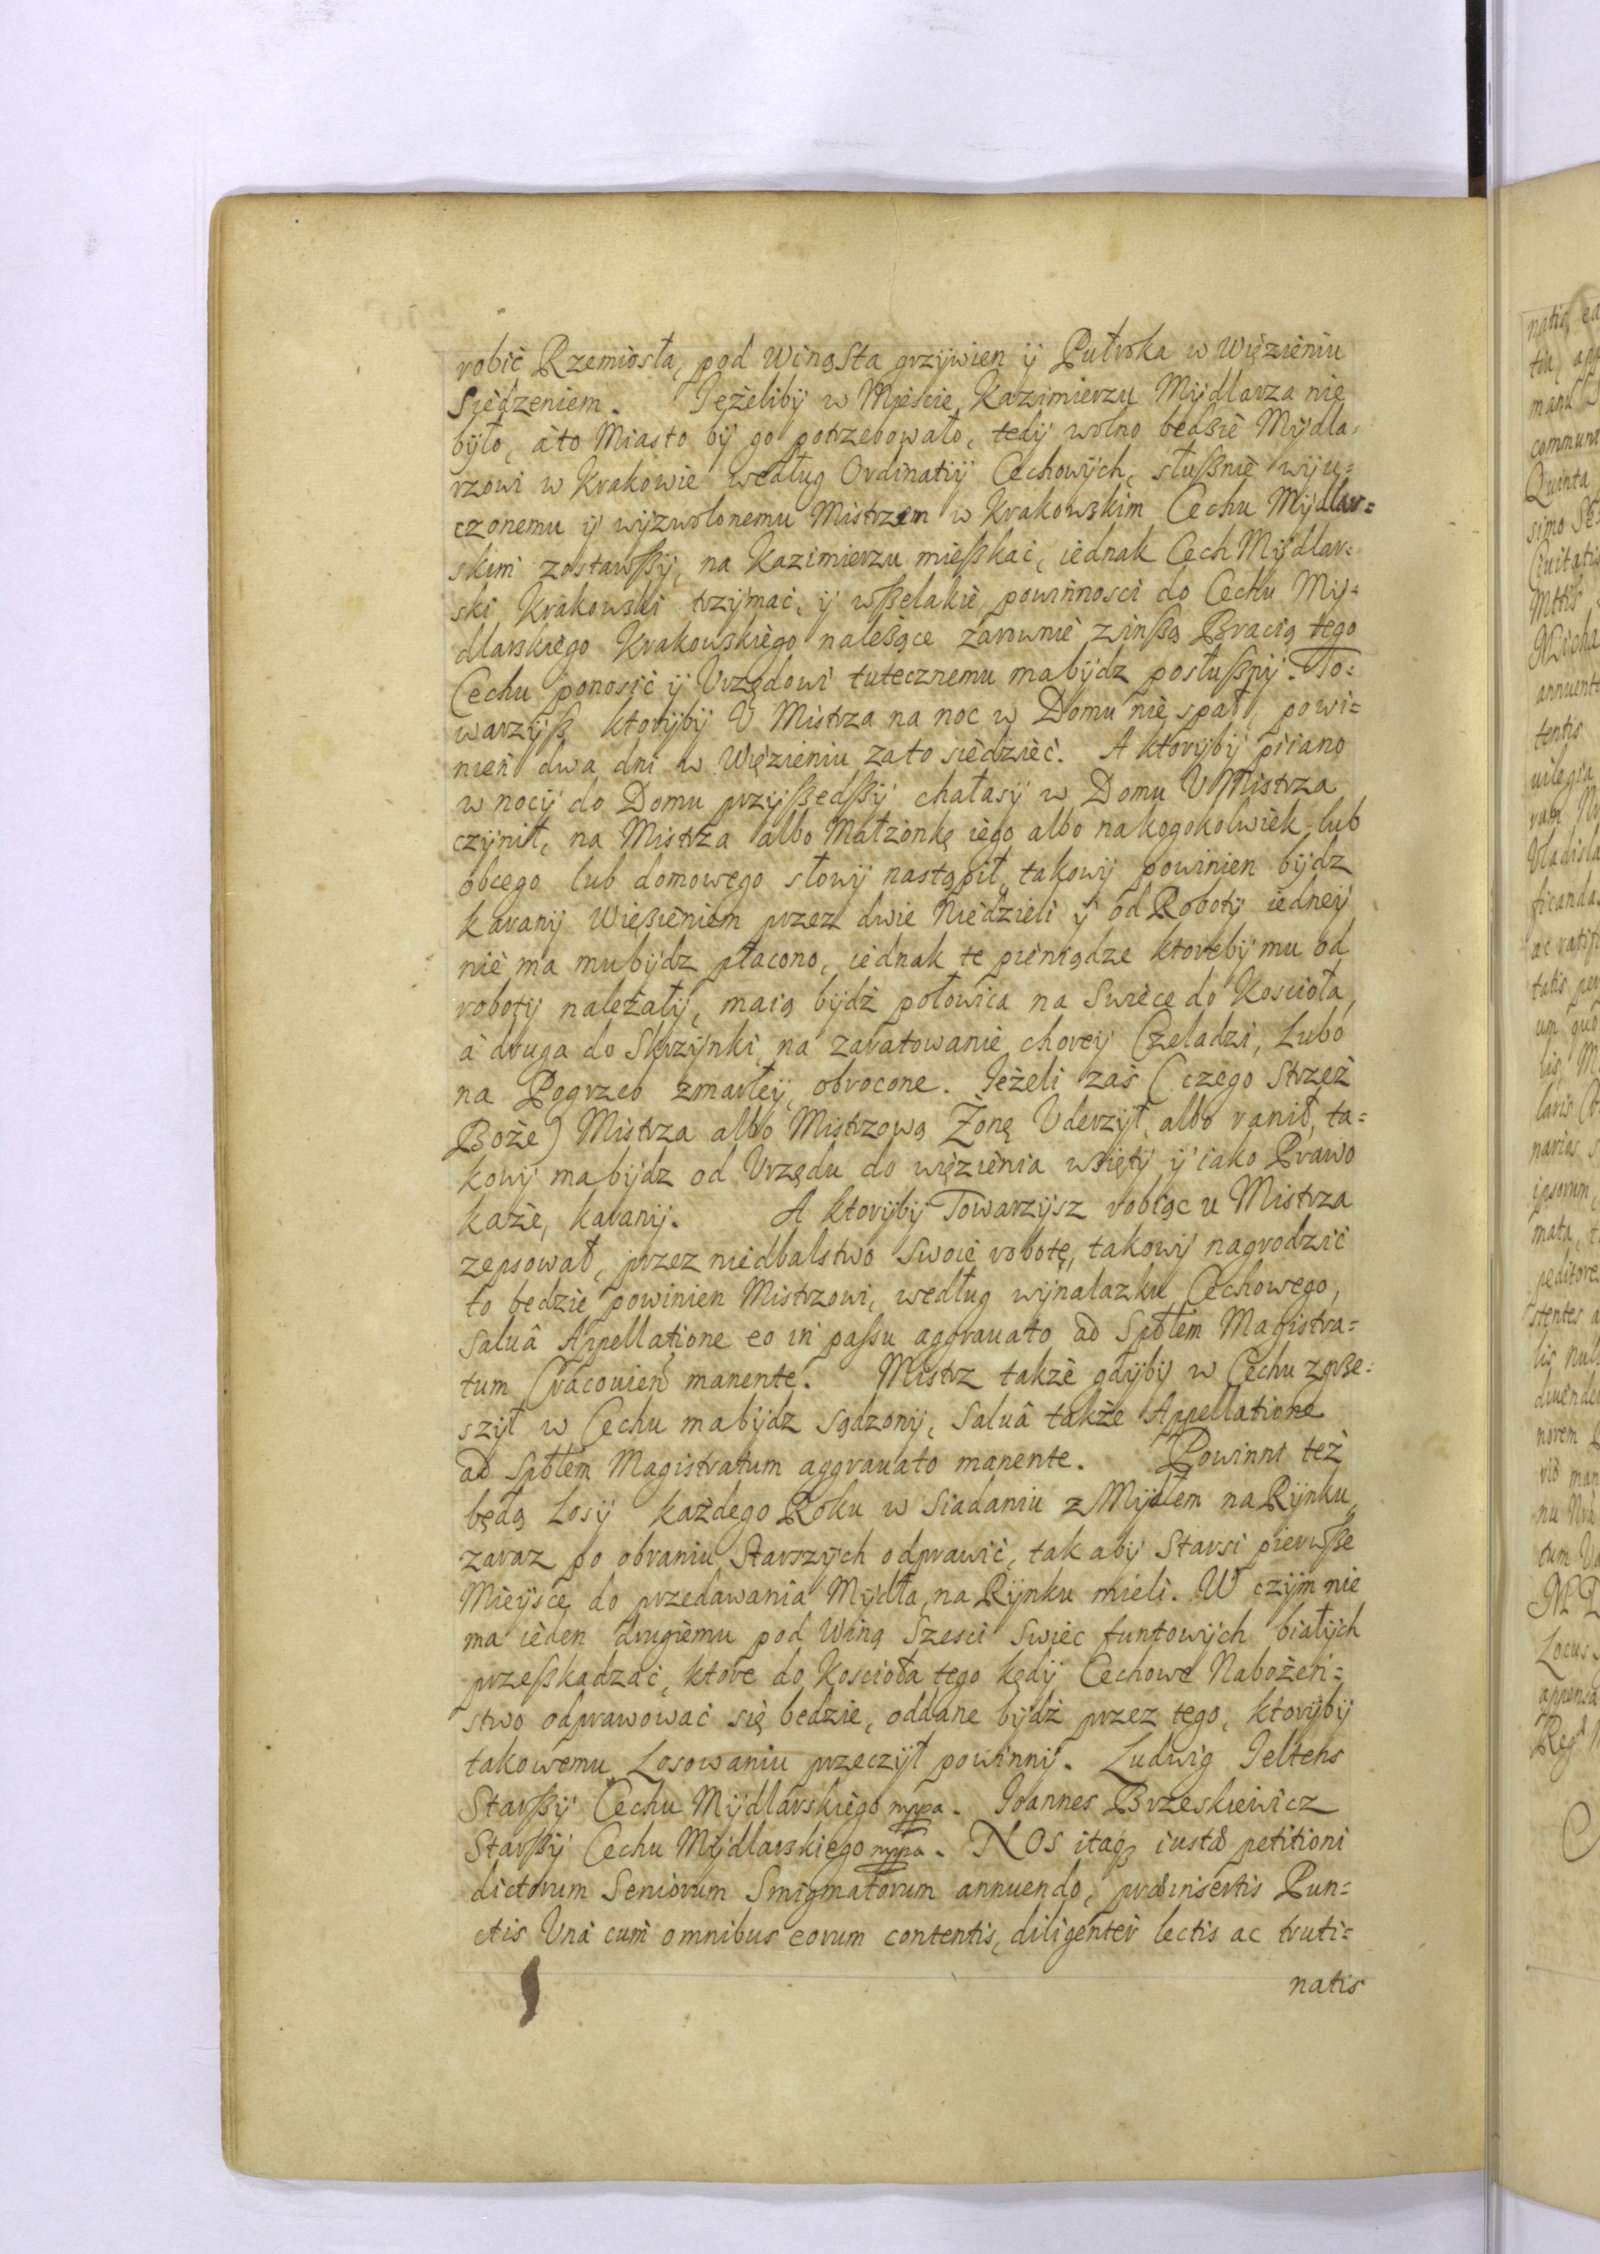 robić Rzemiosła, pod Winą Sta grzÿwien ÿ Pułroka w Więzieniu
Siedzeniem. Ieżelibÿ w Mieście Kazimierzu Mÿdlarza nie
bÿło, áto Miasto bÿ go potrzebowało, tedÿ wolno bedzie Mÿdla-
rzowi w Krakowie według Ordinatiÿ Cechowÿch, słuſznie wÿu-
czonemu ÿ wÿzwolonemu Mistrzem w Krakowskim Cechu Mÿdlar=
skim zostawſzÿ, na Kazimierzu mieſzkać, iednak Cech Mÿdlar=
ski Krakowski trzÿmać, ÿ wſzelakie powinnosci do Cechu Mÿ-
dlarskiego Krakowskiego należące zarownie zinſzą Bracią tego
Cechu ponosić ÿ Vrzędowi tutecznemu ma bÿdz posłuſznÿ. To=
warzÿſz ktorÿbÿ V Mistrza na noc w Domu nie spał, powi=
nien dwa dni w Więzieniu za to siedzieć. A ktorÿbÿ piiano
w nocÿ do Domu przÿſzedſzÿ chałasÿ w Domu V Mistrza
czÿnił, na Mistrza albo Małżonkę iego albo nakogokolwiek lub
obcego lub domowego słowÿ nastąpił, takowÿ powinien bÿdz
karanÿ Więzieniem przez dwie Niedzieli ÿ od Robotÿ iedneÿ
nie ma mu bÿdz płacono, iednak te pieniądze ktorebÿ mu od
robotÿ należałÿ, maią bÿdź połowica na Swiece do Kosciołá,
á druga do Skrzÿnki na zaratowanie choreÿ Czeladzi, Lubo
na Pogrzeb zmarłeÿ, obrocone. Ieżeli zaś (czego Strzeż
Boże) Mistrza albo Mistrzową Żonę Vderzÿł, albo ranił, ta=
kowÿ ma bÿdz od Vrzędu do więzienia wzięty ÿ iako Prawo
każe, karanÿ. A ktorÿbÿ Towarzÿsz robiąc u Mistrza
zepsował, przez niedbalstwo swoie robotę, takowÿ nagrodzić
to bedzie powinien Mistrzowi, według wÿnalazku Cechowego,
salvâ Appellatione eo in paſsu aggrauato ad Spblem Magistra=
tum Cracovien manente. Mistrz także gdÿbÿ w Cechu zgrze=
szÿł w Cechu ma bÿdz sądzonÿ, saluâ także Appellatione
ad Spblem Magistratum aggrauato manente. Powinni też
będą Losÿ każdego Roku w siadaniu z Mÿdłem na Rÿnku,
zaraz po obraniu Starszÿch odprawić, tak abÿ Starsi pierwſze
Mieÿsce do przedawania Mÿdła na Rÿnku mieli. W czÿm nie
ma ieden drugiemu pod Winą Szesci Swiec funtowÿch białÿch
przeſzkadzać, ktore do Koscioła tego kędÿ Cechowe Nabożeń=
stwo odprawować się bedzie, oddane bÿdź przez tego, ktorÿbÿ
takowemu Losowaniu przeczÿł powinnÿ. Ludwig Ieltens
Starſzÿ Cechu Mÿdlarskiego mppa. Ioannes Brzeskiewicz
Starſzÿ Cechu Mÿdlarskiego mppa. NOS itaqꝫ iustæ petitioni
dictorum Seniorum Smigmatorum annuendo, præinsertis Pun=
ctis Vná cum omnibus eorum contentis, diligentèr lectis ac truti=
natis